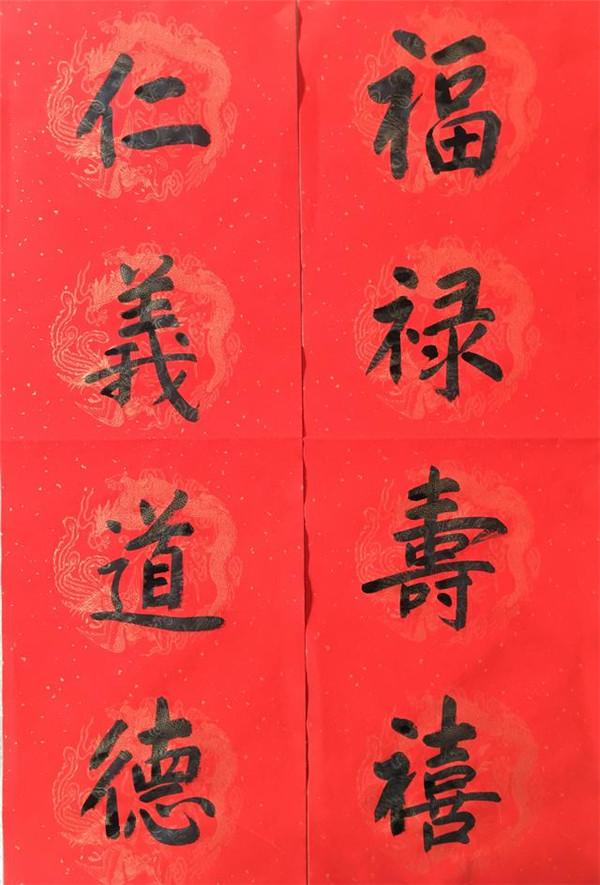 福禄壽禧
仁義道德